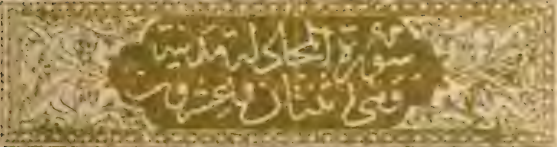 سورة المجادلة مدنية
وهي اثنتان وعشرون